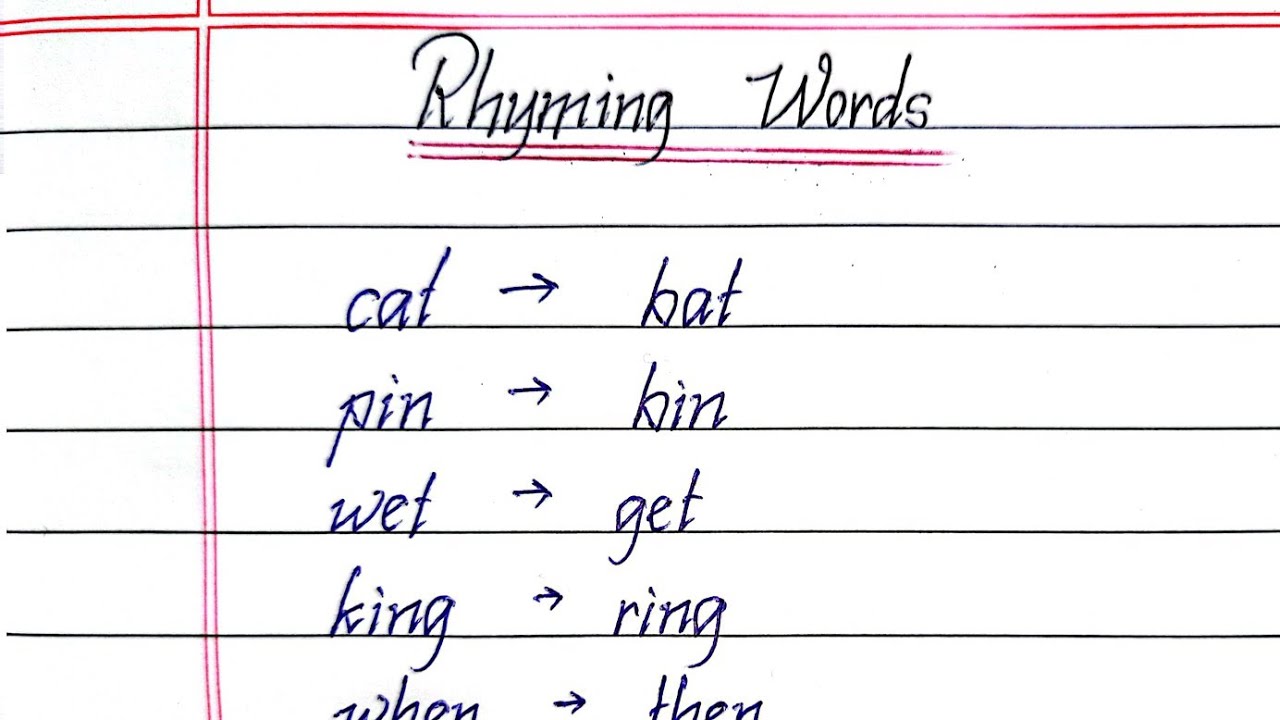 Rhyming Words
cat → bat
pin → bin
wet → get
king → ring
when → then